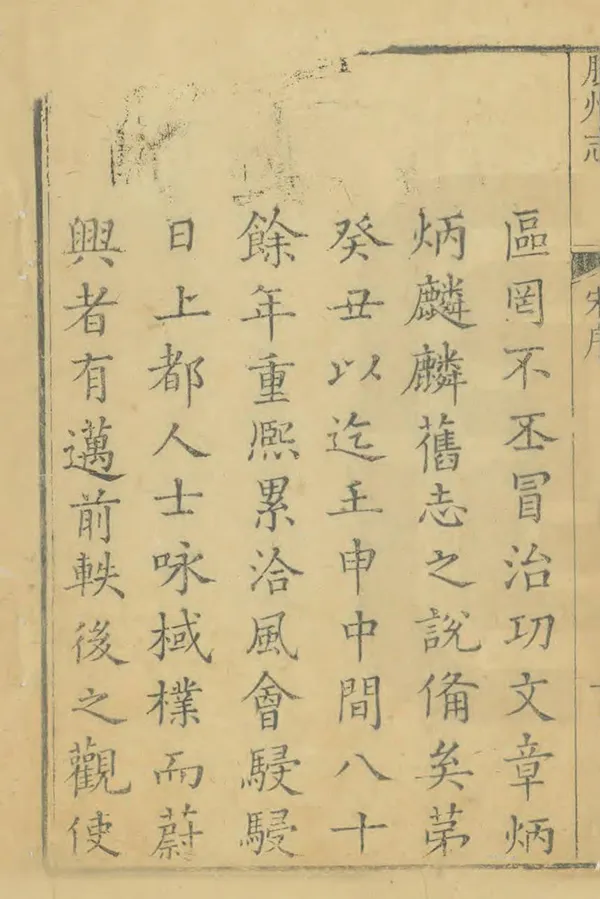 膠州志
宋序
區罔不丕冒治㓛文章炳
炳麟麟舊志之說備矣苐
癸丑以迄壬申中間八十
餘年重熈累洽風會駸駸
日上都人士咏棫樸而蔚
興者有邁前軼後之觀使